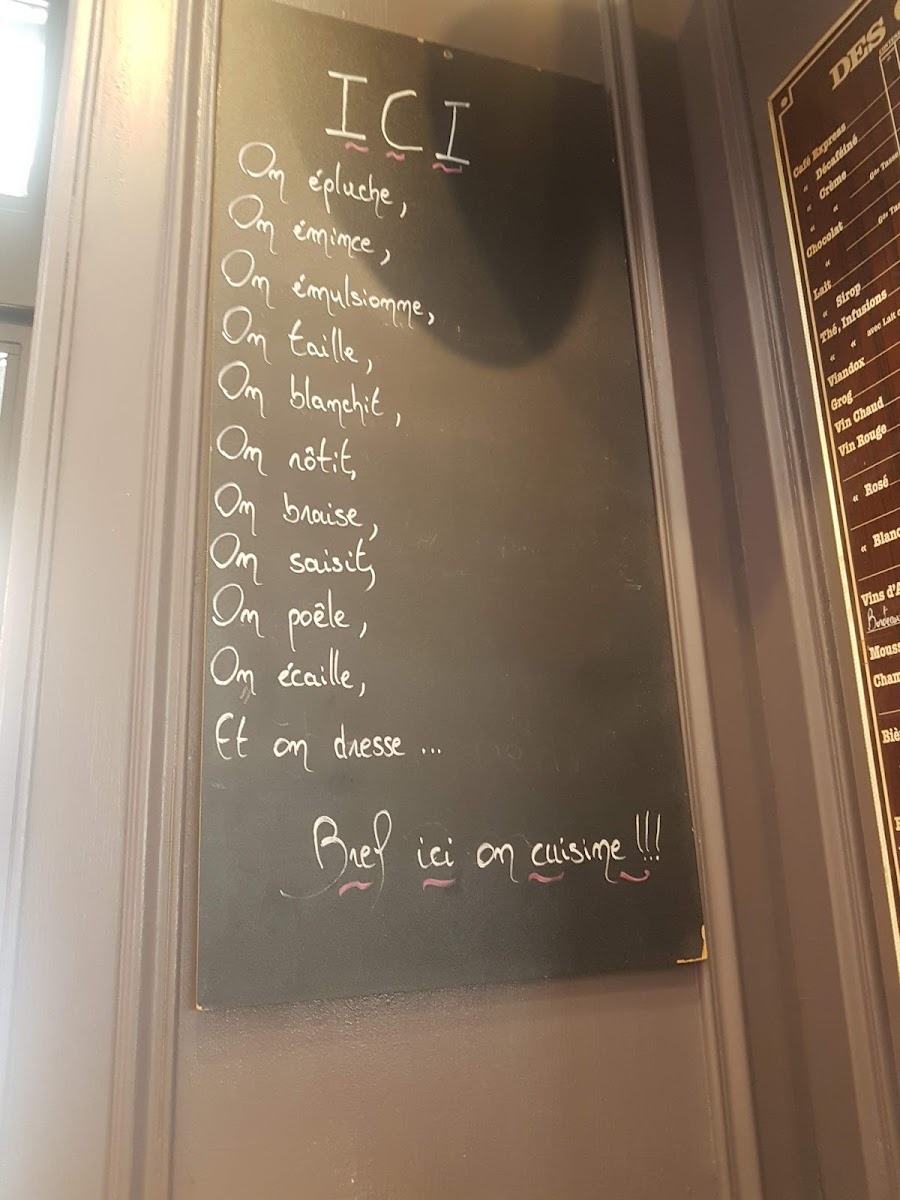 ICI
On épluche,
On émince,
On émulsionne,
On taille,
On blanchit,
On rôtit,
On braise,
On saisit,
On poêle,
On écaille,
Et on dresse ...
Bref ici on cuisine !!!
DES
Café Express
" Décaféiné
" Crème
" " Gde Tasse
Chocolat
"
Lait
" Sirop
Thé, Infusions
" " avec Lait
Viandox
Grog
Vin Chaud
Vin Rouge
" Rosé
" Blanc
Vins d'A